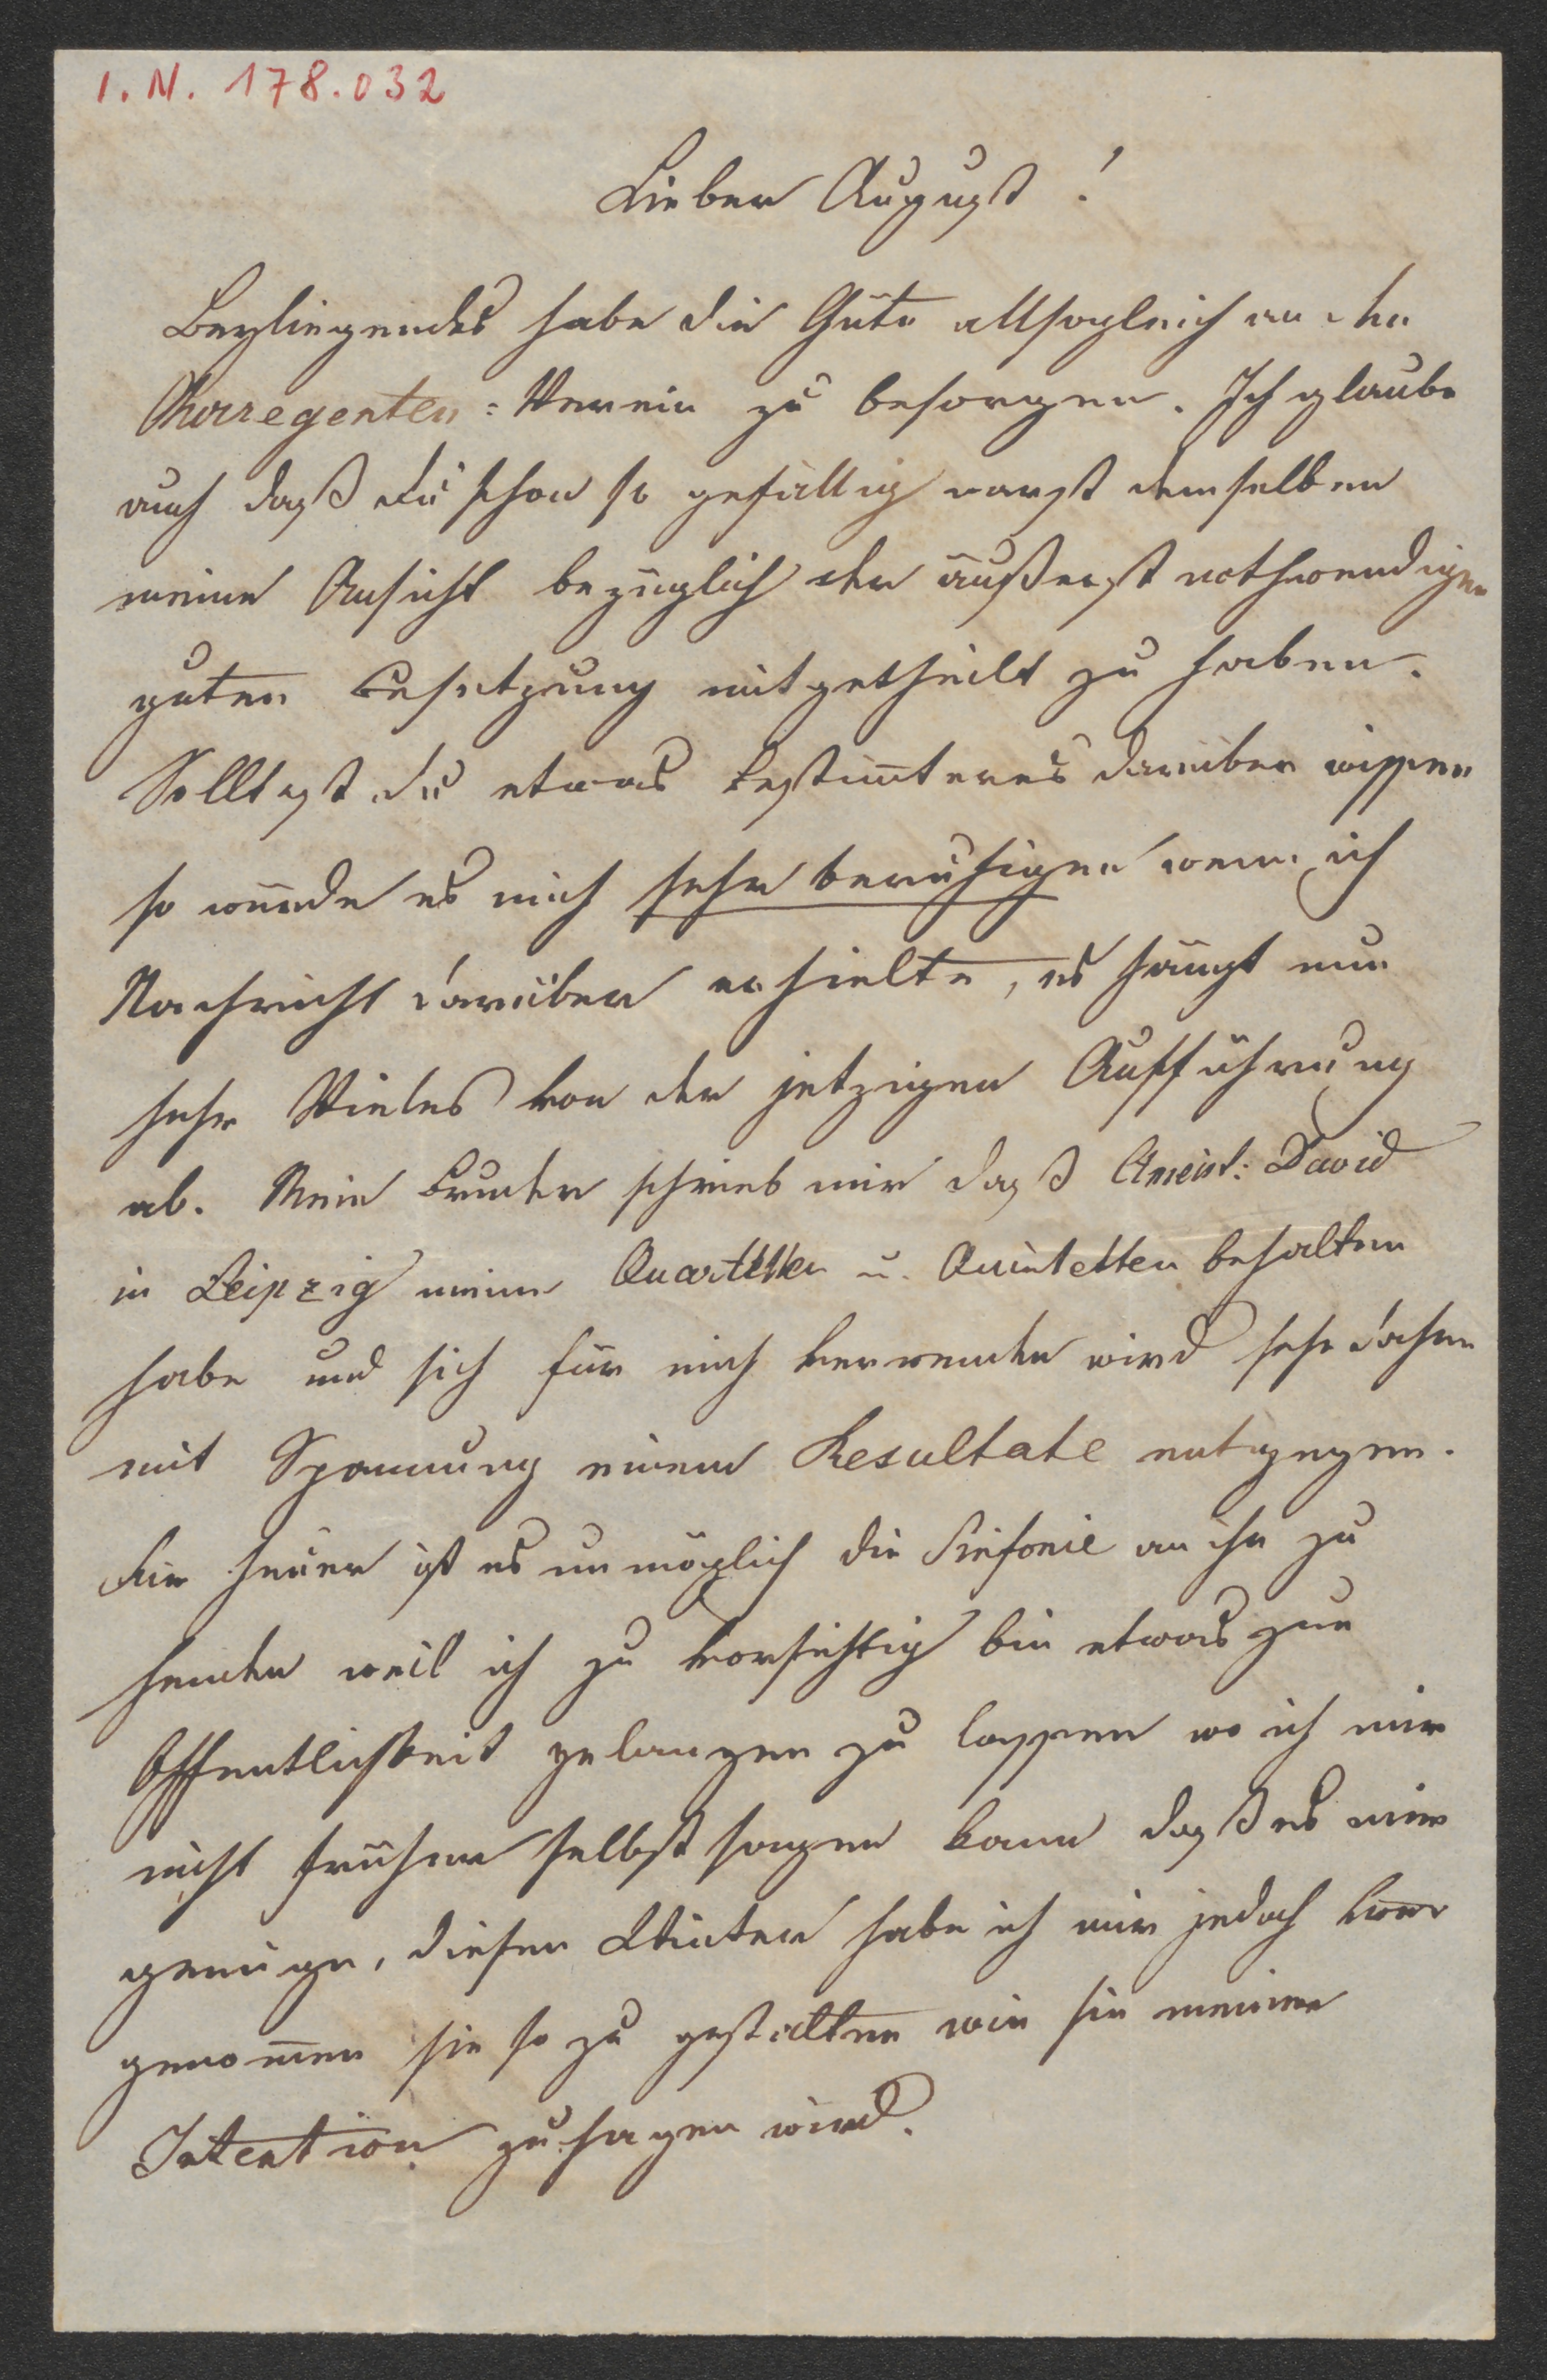 I. N. 178.032
Lieber August!
Beyliegendes habe die Güte allsogleich an den
Chorregenten=Verein zu besorgen. Ich glaube
auch daß Du schon so gefällig warst demselben
meine Ansicht bezüglich der äußerst nothwendigen
guten Besetzung mitgetheilt zu haben.
Solltest Du etwas bestimteres darüber wissen
so würde es mich sehr beruhigen wenn ich
Nachricht darüber erhielte, es hängt nun
sehr Vieles von der jetzigen Aufführung
ab. Mein Bruder schrieb mir daß David
in Leipzig meine Quartetten u. Quintetten behalten
habe und sich für mich verwenden wird sehe daher
mit Spannung einem Resultate entgegen.
Für heuer ist es unmöglich die Sinfonie an ihn zu
senden weil ich zu vorsichtig bin etwas zur
Öffentlichkeit gelangen zu lassen wo ich mir
nicht früher selbst sagen kann daß es mir
genüge, diesen Winter habe ich mir jedoch vor
genomen sie so zu gestalten wie sie meiner
Intention zusagen wird.